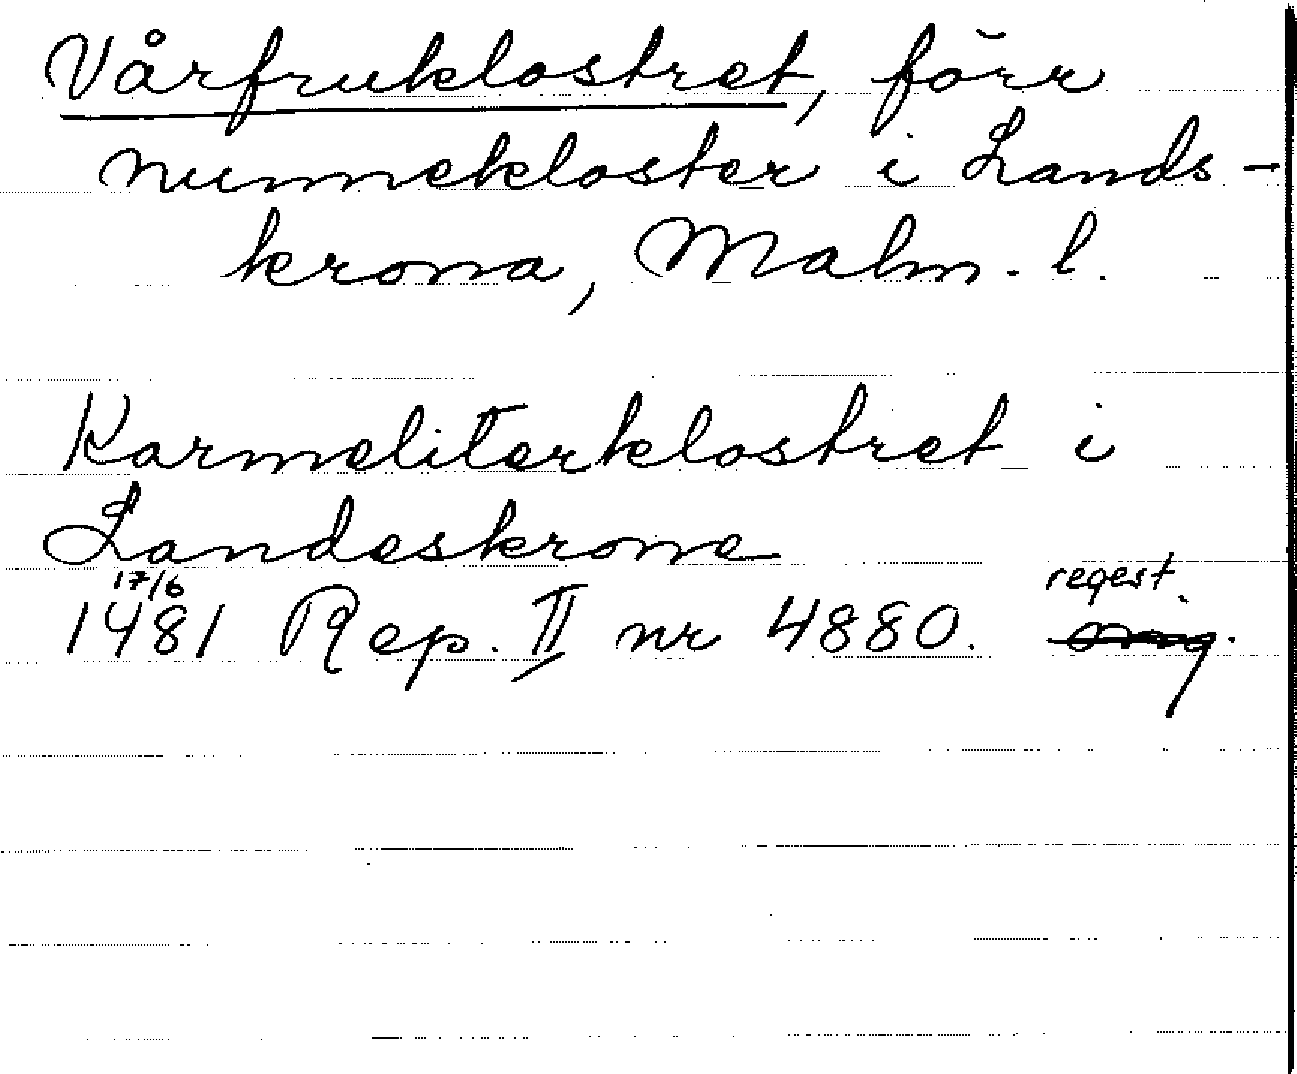 Vårfruklostret, förr
nunnekloster i Lands-
krona, Malm. l.
Karmeliterklostret i
Landeskrone
17/6
regest.
1481 Rep. II nr 4880.